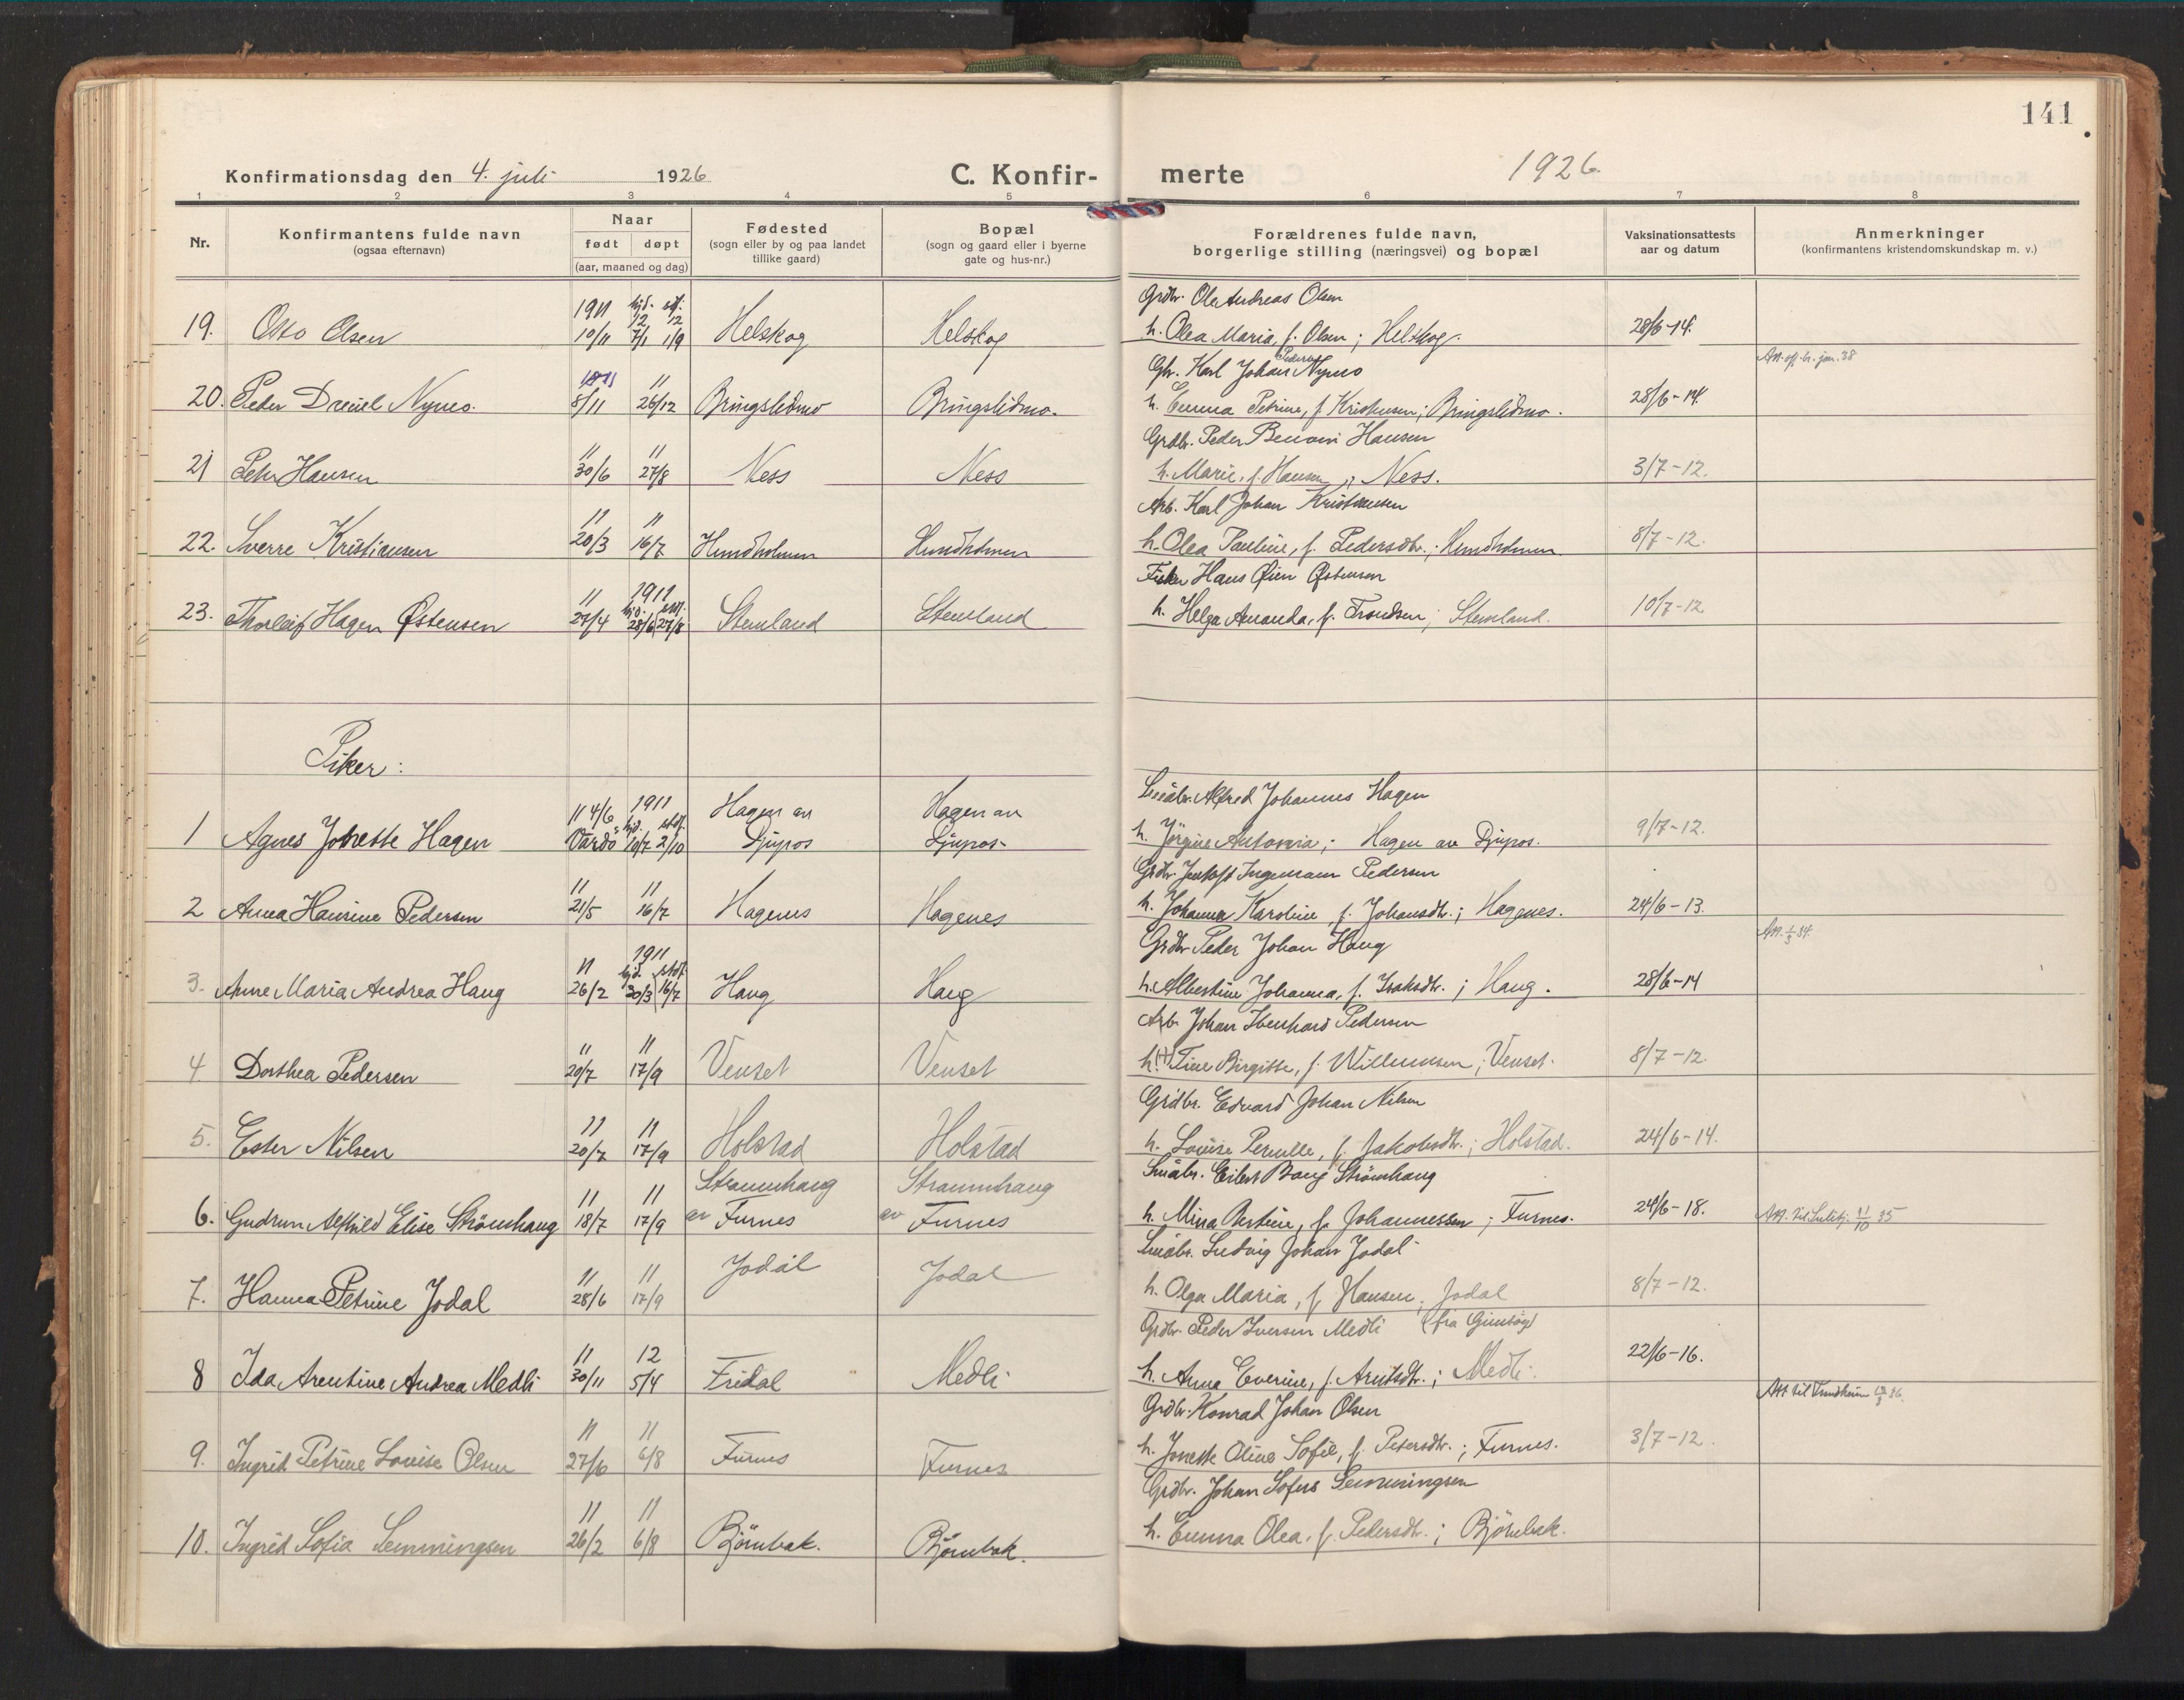 141
Konfirmationsdag den 4. juli 1926
C. Konfir-
merte
1926.
1 2 3 4 5 6 7 8
Nr.
Konfirmantens fulde navn
(ogsaa efternavn)
Naar
født døpt
(aar, maaned og dag)
Fødested
(sogn eller by og paa landet
tillike gaard)
Bopæl
(sogn og gaard eller i byerne
gate og hus-nr.)
Forældrenes fulde navn,
borgerlige stilling (næringsvei) og bopæl
Vaksinationsattests
aar og datum
Anmerkninger
(konfirmantens kristendomskundskap m. v.)
Grdbr. Ole Andreas Olsen
1911 hjd. stf.
12 12
19. Otto Olsen 10/11 7/1 1/9 Helskog Helskog h. Olea Maria, f. Olsen; Helskog. 28/6-14.
Gbr. Karl Johan Pedersen Nymo
Att. jan. 38
1911 11
20. Peder Dreiel Nymo. 8/11 26/12 Bringslidmo Bringslidmo. h. Emma Petrine, f. Kristensen; Bringslidmo. 28/6-14.
Grdbr. Peder Benoni Hansen
11 11
21 Peter Hansen 30/6 27/8 Ness Ness h. Marie, f. Hansen; Ness. 3/7-12.
Arb. Karl Johan Kristiansen
11 11
22. Sverre Kristiansen 20/3 16/7 Hundholmen Hundholmen h. Olea Pauline, f. Pedersdtr.; Hundholmen 8/7-12.
Fisker Hans Øien Østensen
11 1911 hjd. stdf.
23. Thorleif Hagen Østensen 27/4 28/6 27/8 Stemland Stemland h. Helga Amanda, f. Trondsen; Stemland. 10/7-12.
Piker:
Småbr. Alfred Johannes Hagen
11 4/6 1911 hjd. stdf. Hagen av Hagen av
1 Agnes Jonette Hagen Vardö 10/7 2/10 Djupos Djupos- h. Jörgine Antonia; Hagen av Djupos. 9/7-12.
Grdbr. Jentoft Ingemann Pedersen
11 11
2 Anna Hansine Pedersen 21/5 16/7 Hagenes Hagenes h. Johanna Karoline, f. Johansdtr.; Hagenes. 24/6-13.
Grdbr. Peder Johan Haug
Att. 1/3 34.
11 1911 hjd. stdf.
3. Anne Maria Andrea Haug 26/2 30/3 16/7 Haug Haug h. Albertine Johanna, f. Isaksdtr.; Haug. 28/6-14
Arb. Johan Iberhard Pedersen
11 11
4. Dorthea Pedersen 20/7 17/9 Venset Venset h. (+) Tine Birgitte, f. Willumsen; Venset. 8/7-12.
Grdbr. Edvard Johan Nilsen
11 11
5. Ester Nilsen 20/7 17/9 Holstad Holstad h. Louise Pernille, f. Jakobsdtr.; Holstad. 24/6-14.
Småbr. Eilert Bang Strömhaug
11 11 Straumhaug Straumhaug
6. Gudrun Alfhild Elise Strömhaug 18/7 17/9 av Furnes av Furnes h. Mina Bertine, f. Johannessen; Furnes. 24/6-18. Att. til Sulitj. 11/10 35
Småbr. Ludvig Johan Jodal
11 11
7. Hanna Petrine Jodal 28/6 17/9 Jodal Jodal h. Olga Maria, f. Hansen, Jodal 8/7-12.
Grdbr. Peder Iversen Medli (fra Gimsöy)
11 12
8 Ida Arentine Andrea Medli 30/11 5/4 Fridal Medli h. Anna Everine, f. Arntsdtr.; Medli. 22/6-16.
Grdbr. Konrad Johan Olsen
Att til Trondheim
11 11
9. Ingrid Petrine Louise Olsen 27/6 6/8 Furnes Furnes h. Jonette Oline Sofie, f. Petersdtr.; Furnes. 3/7-12.
Grdbr. Johan Sofus Lemmingsen
11 11
10. Ingrid Sofia Lemmingsen 26/2 6/8 Björnbak. Björnbak. h. Emma Olea, f. Pedersdtr.; Björnbak.